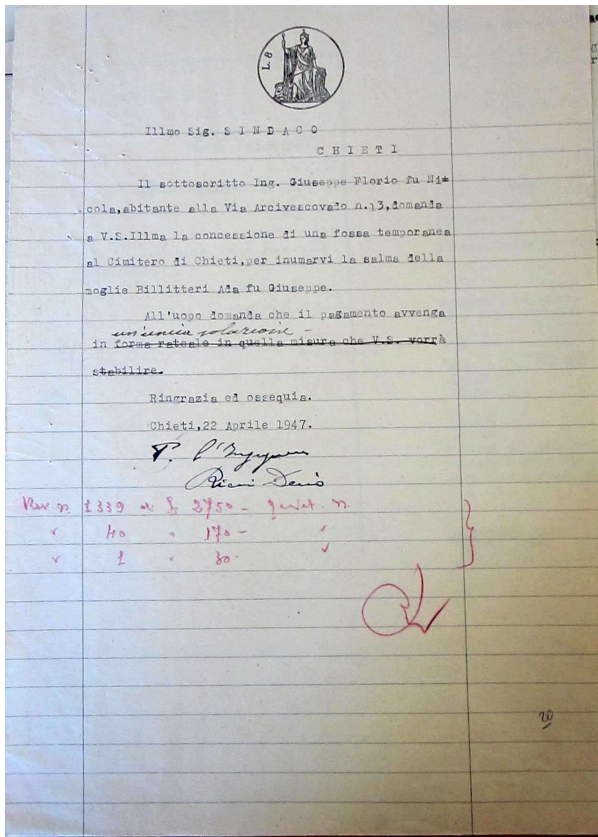 L. 8
Illmo Sig. S I N D A C O
C H I E T I
Il sottoscritto Ing. Giuseppe Florio fu Ni=
cola,abitante alla Via Arcivescovado n.13,domanda
a V.S.Illma la concessione di una fossa temporanea
al Cimitero di Chieti,per inumarvi la salma della
moglie Billitteri Ada fu Giuseppe.
All'uopo domanda che il pagamento avvenga
un'unica soluzione -
in forma rateale in quella misura che V.S. vorrà
stabilire.
Ringrazia ed ossequia.
Chieti,22 Aprile 1947.
P. l'Ingegnere
Ricci
Rev. n. 1339 £ 2750 - n.
" 40 " 170 - "
" 1 " 30 - "